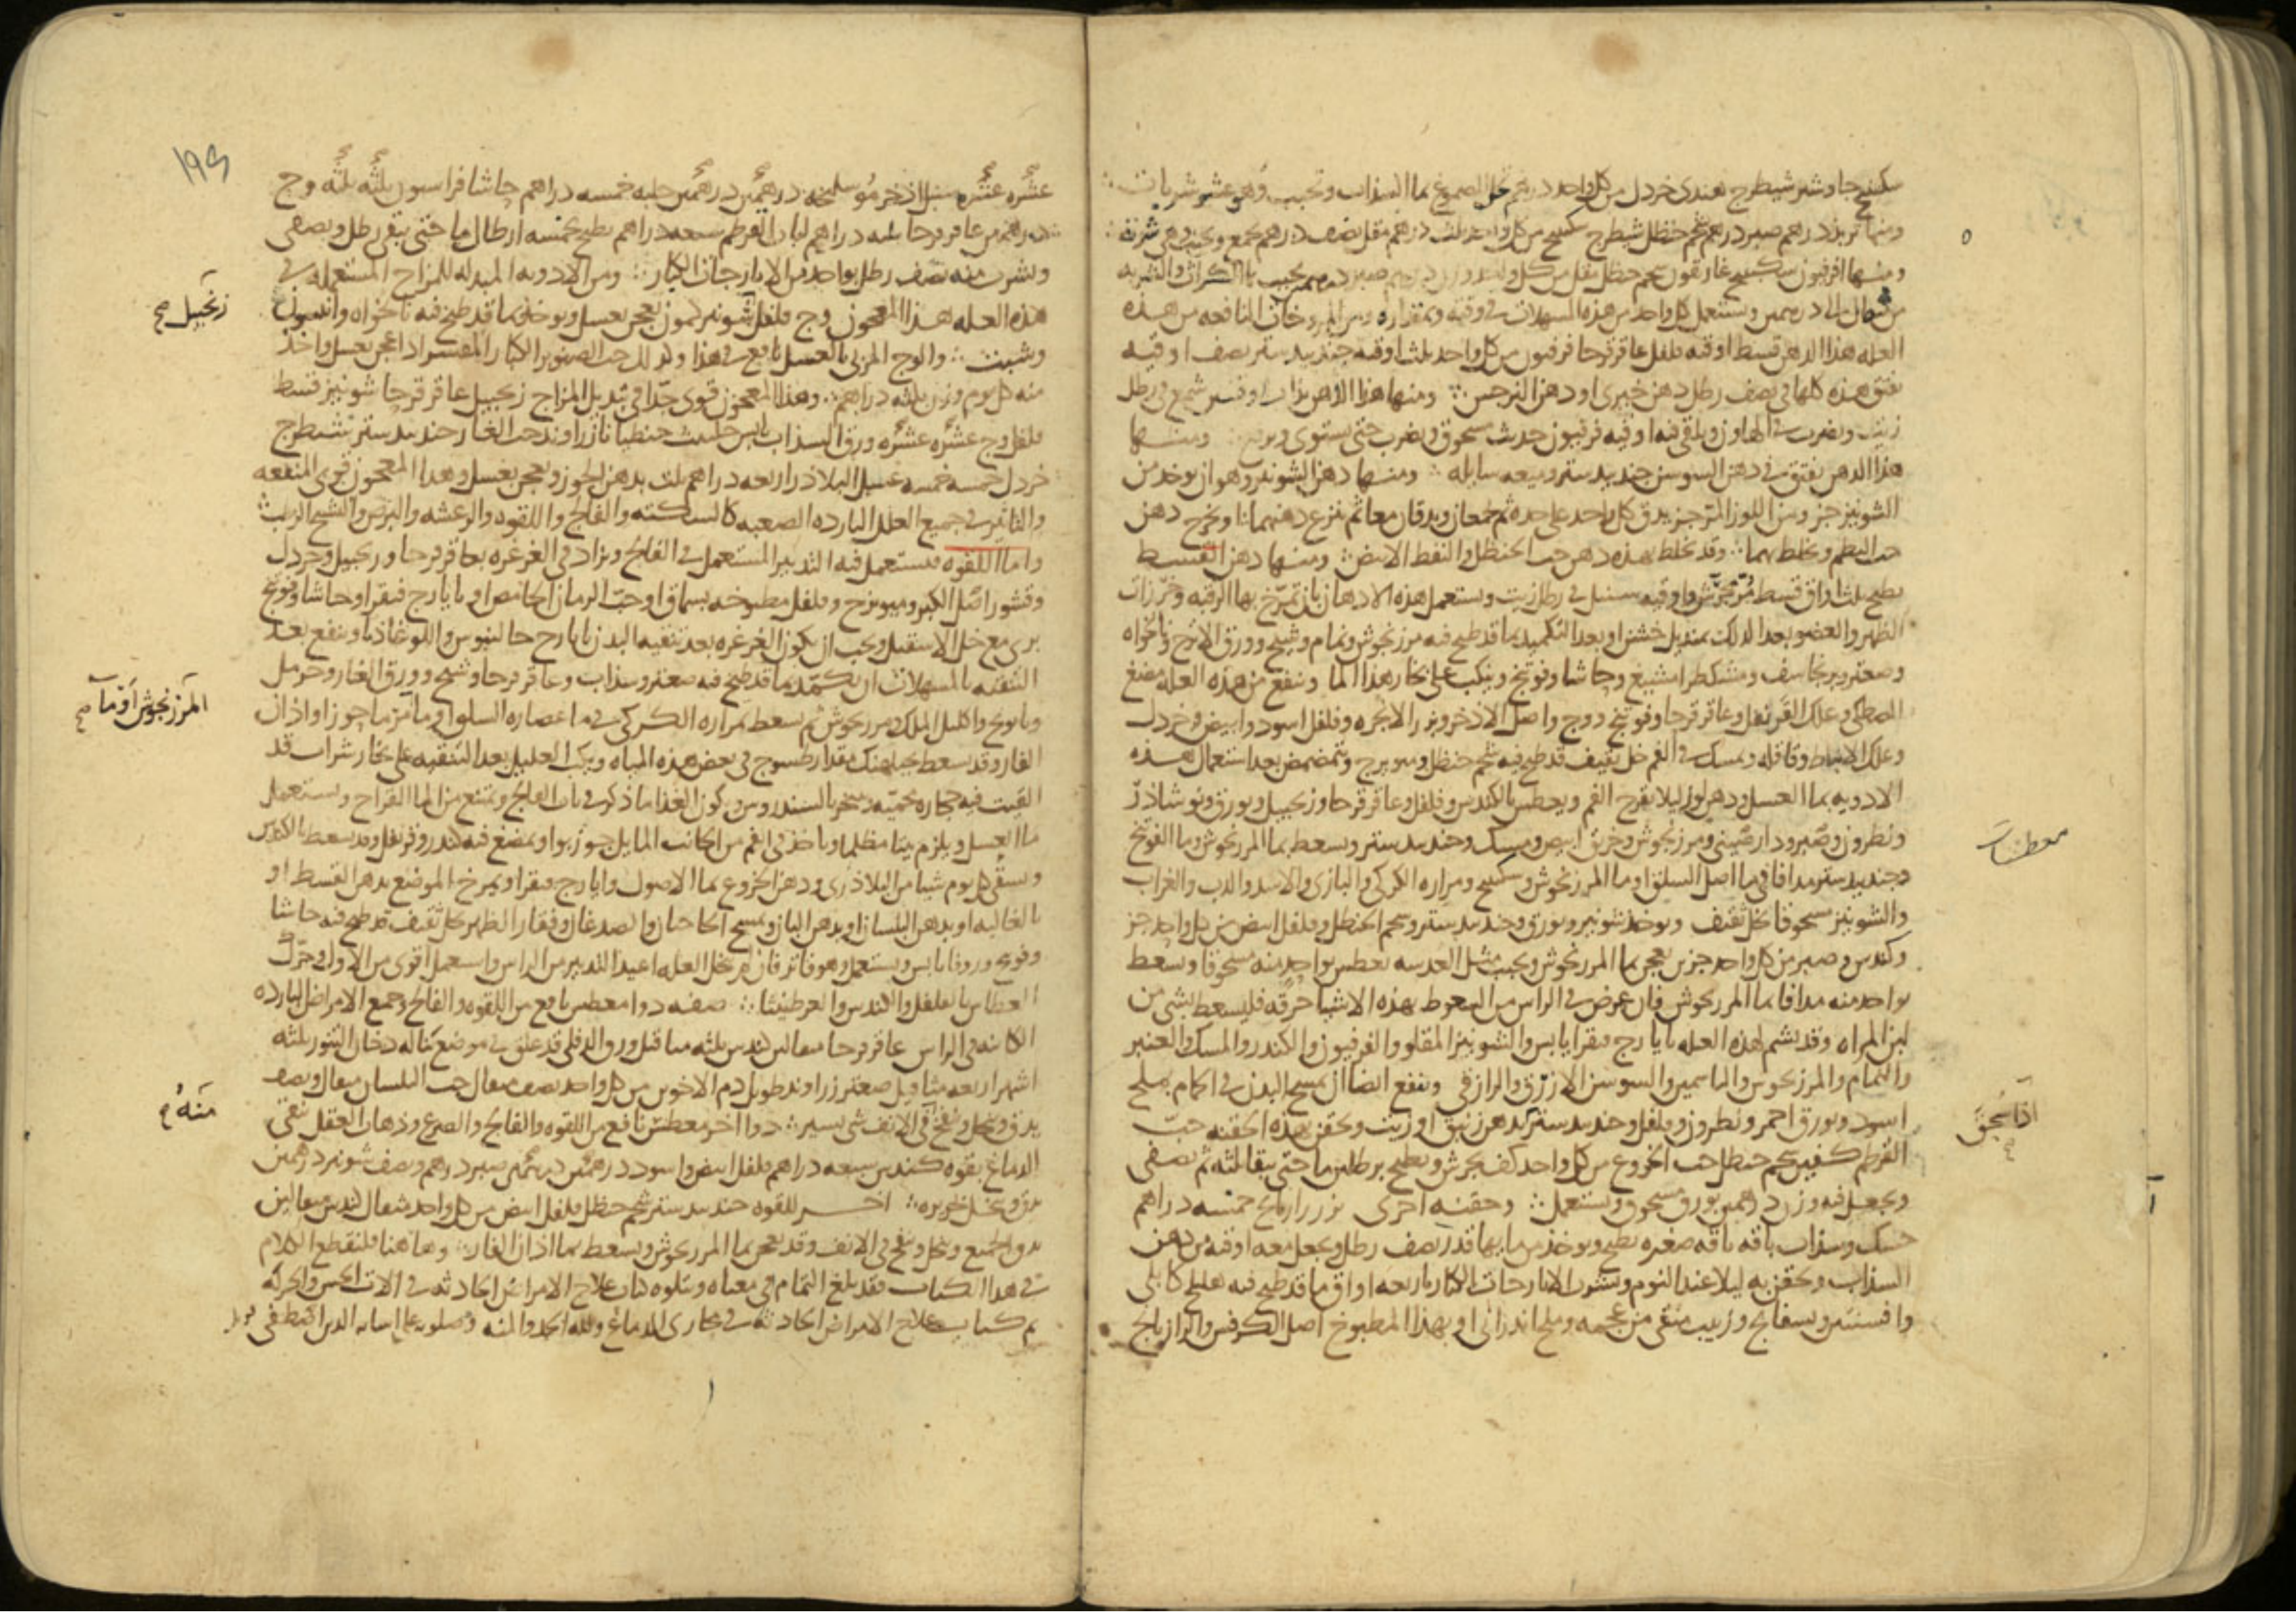 سكبينج جاوشير شيطرج هندي خردل من كل واحد درهم تحل الصموغ بما السذاب وتحبب وهي عشر شربات
ومنها تربذ درهم صبر درهم شحم حنظل شيطرج سكبينج من كل واحد ثلث درهم مقل نصف درهم يجمع ويحبب وهي شربة
ومنها افرفيون سكبينج غاريقون شحم حنظل مقل من كل واحد صبر درهم يحبب بما الكراث والشربه
من مثقال الى درهمين ويستعمل كل واحد من هذه المسهلات في وقته وبمقداره ومن المروخات النافعه من هذه
العله هذا الدهن قسط اوقيه فلفل عاقرقرحا فرفيون من كل واحد ثلث اوقيه جندبيدستر نصف اوقيه
يفتق هذه كلها في نصف رطل دهن خيري او دهن النرجس ومنها هذا الدهن يذاب اوقيتين شمع في رطل
زيت ويضرب في الهاون ويلقى فيه اوقيه فرفيون حديث مسحوق ويضرب حتى يستوي ويرفع ومنها
هذا الدهن يفتق في دهن السوسن جندبيدستر وميعه سايله ومنها دهن الشونيز وهو ان يوخذ من
الشونيز جز ومن اللوز المر جز يدق كل واحد على حده ثم يجمعان ويدقان معا ثم ينزع دهنهما ويخرج دهن
حب البطم ويخلط بهما وقد يخلط بهذه دهن حب الحنظل والنفط الابيض ومنها دهن القسط
يطبخ ثلث اواق قسط مر مجرش واوقيه سنبل في رطل زيت ويستعمل هذه الادهان بان تمرخ بها الرقبه وخرزات
الظهر والعضو بعد الدلك بمنديل خشن او بعد التكميد بما قد طبخ فيه مرزنجوش ونمام وشيح وورق الاترج ونانخواه
وصعتر وبرنجاسف ومشكطرامشيع وحاشا وفوتنج وينكب على بخار هذا الما وينفع من هذه العله مضغ
المصطكي وعلك القرنفل وعاقرقرحا وفوتنج ووج واصل الاذخر وبزر الانجره وفلفل اسود وابيض وخردل
وعلك الانباط وقاقله ويمسك في الفم خل ثقيف قد طبخ فيه شحم حنظل وميويزج ويتمضمض بعد استعمال هذه
الادويه بما العسل ودهن لوز ليلا يقرح الفم ويعطس بالكندس وفلفل وعاقرقرحا وزنجبيل وبورق ونوشاذر
معطسات
ونطرون وصبر ودارصيني ومرزنجوش وخربق ابيض ومسك وجندبيدستر ويسعط بما المرزنجوش وما الفوتنج
وجندبيدستر مدافا في ما اصل السلق او ما المرزنجوش وسكبينج ومراره الكركي والبازي والاسد والدب والغراب
والشونيز مسحوقا بخل ثقيف ويوخذ شونيز وبورق وجندبيدستر وشحم الحنظل وفلفل ابيض من كل واحد جز
وكندس وصبر من كل واحد جزين يعجن بما المرزنجوش ويحبب مثل العدسه يعطس بواحد منه مسحوقا ويسعط
بواحد منه مدافا بما المرزنجوش فان عرض في الراس من السعوط بهذه الاشيا حرقه فليسعط بشي من
لبن المراه وقد يشم لهذه العله بايارج فيقرا يابس والشونيز المقلو والفرفيون والكندر والمسك والعنبر
والنمام والمرزنجوش والياسمين والسوسن الازرق والرازقي وينفع ايضا ان يمسح البدن في الحمام بملح
اذا سحق
اسود وبورق احمر ونطرون وفلفل وجندبيدستر بدهن زنبق او زيت ويحقن بهذه الحقنه حب
القرطم كفين شحم حنظل حب الخروع من كل واحد كف يجرش ويطبخ برطلين ما حتى يبقا ثلثه ثم يصفى
ويجعل فيه وزن درهمين بورق مسحوق ويستعمل وحقنه اخرى بزر رازيانج خمسه دراهم
حسك وسذاب باقه باقه صغيره يطبخ ويوخذ من مايها قدر نصف رطل ويجعل معه اوقيه من دهن
السذاب ويحقن به ليلا عند النوم ويشرب الايارجات الكبار باربعه اواق ما قد طبخ فيه هليلج كابلي
وافسنتين وبسفايج وزبيب منقى من عجمه وملح اندراني او بهذا المطبوخ اصل الكرفس والرازيانج
١٩٤
عشره عشره سنبل اذخر مر سليخه درهمين درهمين حلبه خمسه دراهم حاشا فراسيون ثلثه ثلثه وج
درهمين عاقرقرحا ثلثه دراهم لباب القرطم سبعه دراهم يطبخ بخمسه ارطال ما حتى يبقى رطل ويصفى
ويشرب منه نصف رطل بواحد من الايارجات الكبار ومن الادويه المبدله للمزاج المستعمله في
زنجبيل صح
هذه العله هذا المعجون وج فلفل شونيز كمون يعجن بعسل ويوخذ بما قد طبخ فيه نانخواه وانيسون
وشبث والوج المربى بالعسل نافع في هذا وكذلك حب الصنوبر الكبار المقشر اذا عجن بعسل واخذ
منه كل يوم وزن ثلثه دراهم وهذا المعجون قوي جدا في تبديل المزاج زنجبيل عاقرقرحا شونيز قسط
فلفل وج عشره عشره ورق السذاب يابس حلتيت جنطيانا زراوند حب الغار جندبيدستر شيطرج
خردل خمسه خمسه عسل البلاذر اربعه دراهم يلت بدهن الجوز ويعجن بعسل وهذا المعجون قوي المنفعه
والتاثير في جميع العلل البارده الصعبه كالسكته والفالج واللقوه والرعشه والبرص والتشنج الرطب
واما اللقوه فيستعمل فيه التدبير المستعمل في الفالج ويزاد في الغرغره بعاقرقرحا وزنجبيل وخردل
وقشور اصل الكبر وميويزج وفلفل مطبوخه بسماق او حب الرمان الحامض او بايارج فيقرا وحاشا وفوتنج
بري مع خل الاسقيل ويجب ان يكون الغرغره بعد تنقيه البدن بايارج جالينوس واللوغاذيا وينفع بعد
التنقيه بالمسهلات ان يكمد بما قد طبخ فيه صعتر وسذاب وعاقرقرحا وشيح وورق الغار وحرمل
المرزنجوش او ما صح
وبابونج واكليل الملك ومرزنجوش ثم يسعط بمراره الكركي في ما عصاره السلق او في ما جوز او اذان
الفار وقد يسعط بمقدار طسوج في بعض هذه المياه وينكب العليل بعد التنقيه على بخار شراب قد
القيت فيه حجاره محميه ويبخر بالسندروس ويكون الغذا ما ذكر في باب الفالج ويمنع من الما القراح ويستعمل
ما العسل ويلزم بيتا مظلما وياخذ في الفم من الجانب المايل جوزبوا ويمضغ فيه كندر وقرنفل وقد يسعط بالكندس
ويسقى كل يوم شيا من البلاذري ودهن الخروع بما الاصول وايارج فيقرا ويمرخ الموضع بدهن القسط او
بالغاليه او بدهن البلسان او بدهن البان ويمسح الحاجبان والصدغان وفقار الظهر بخل ثقيف قد طبخ فيه حاشا
وفوتنج وزوفا يابس ويستعمل وهو فاتر فان لم تحل العله اعيد التدبير من الراس واستعمل اقوى من الاول وحرك
العطاس بالفلفل والكندس والعرطنيثا صفه دوا معطس نافع من اللقوه والفالج وجميع الامراض البارده
الكاينه في الراس عاقرقرحا مثقالين كندس ثلثه مثاقيل ورق الدفلى قد علق في موضع يناله دخان التنور ثلثه
منه صح
اشهر اربعه مثاقيل صعتر زراوند طويل دم الاخوين من كل واحد نصف مثقال حب البلسان مثقال ونصف
يدق وينخل وينفخ في الانف شي يسير دوا اخر معطس نافع من اللقوه والفالج والصرع وذهاب العقل ينقي
الدماغ بقوه كندس سبعه دراهم فلفل ابيض واسود درهمين درهمين صبر درهم ونصف شونيز درهمين
يدق وينخل بحريره اخر للقوه جندبيدستر شحم حنظل فلفل ابيض من كل واحد مثقال كندس مثقالين
يدق الجميع وينخل وينفخ في الانف وقد يعجن بما المرزنجوش ويسعط بما اذان الفار وهاهنا فلنقطع الكلام
في هذا الكتاب فقد بلغ التمام في معناه ويتلوه كتاب علاج الامراض الحادثه في الات الحس والحركه
تم كتاب علاج الامراض الحادثه في مجاري الدماغ ولله الحمد والمنه وصلوته على